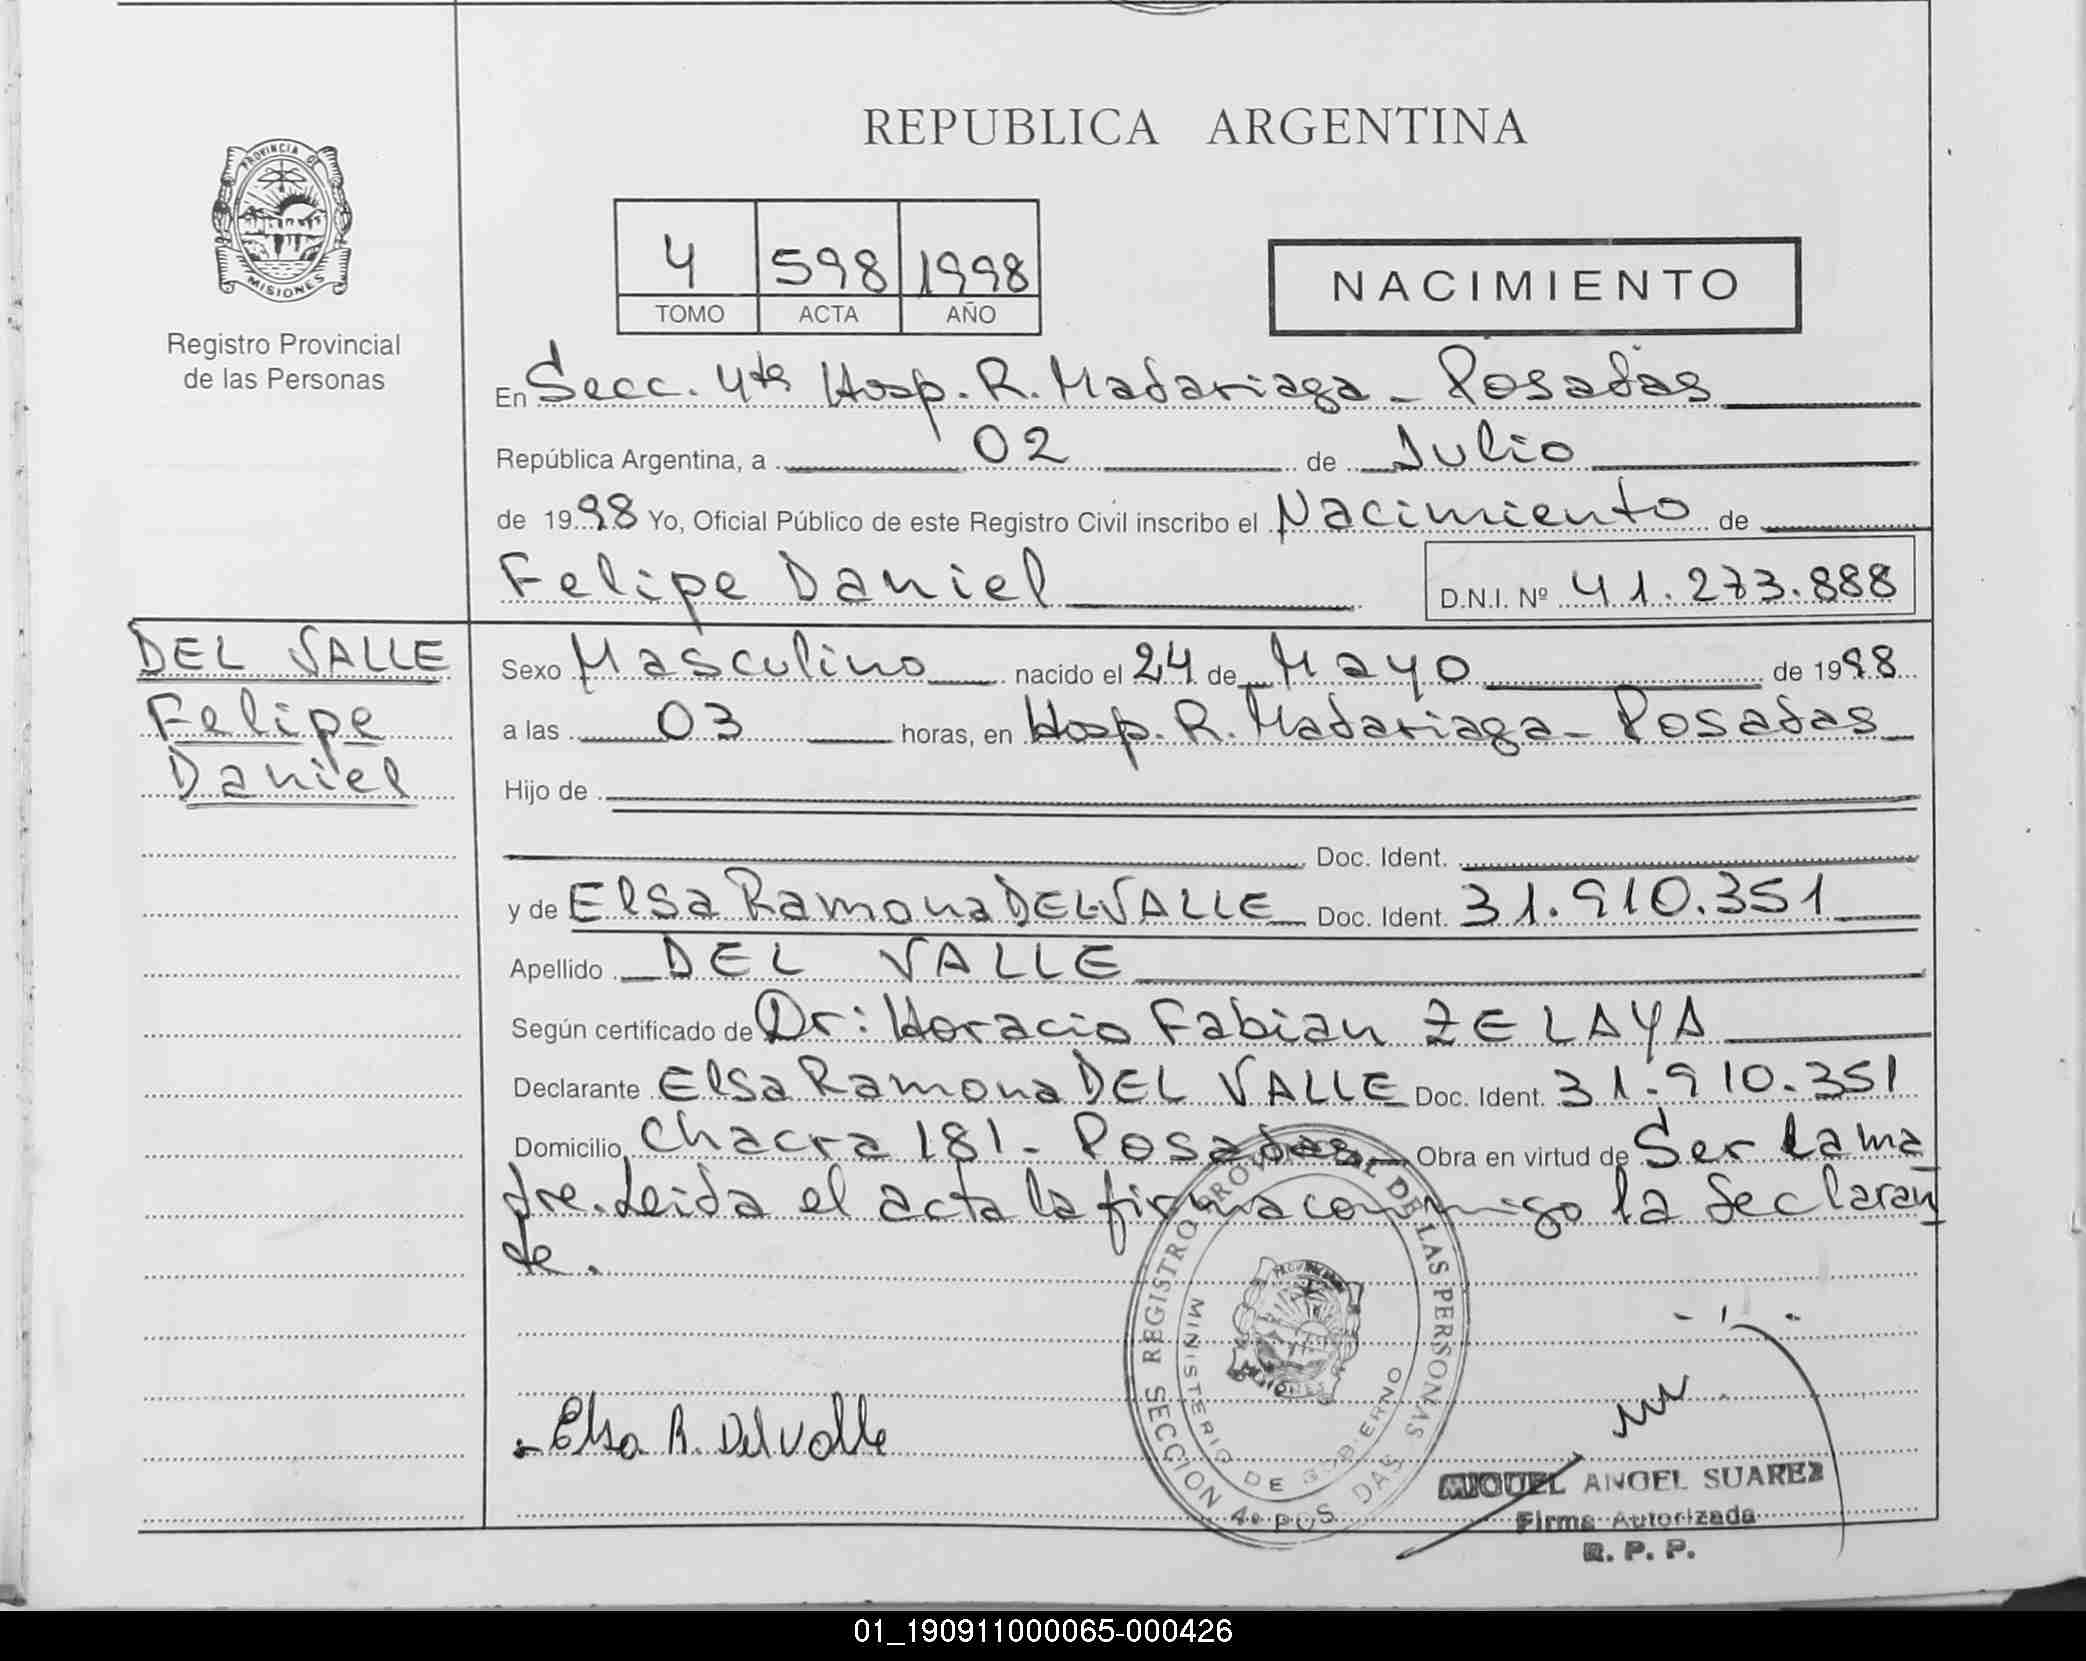 REPUBLICA ARGENTINA
PROVINCIA DE
MISIONES
Registro Provincial
de las Personas
4 598 1998
TOMO ACTA AÑO
NACIMIENTO
En Secc. 4ta Hosp. R. Madariaga - Posadas
República Argentina, a 02 de Julio
de 1998 Yo, Oficial Público de este Registro Civil inscribo el Nacimiento de
Felipe Daniel D.N.I. Nº 41.273.888
DEL VALLE
Felipe
Daniel
Sexo Masculino nacido el 24 de Mayo de 1998
a las 03 horas, en Hosp. R. Madariaga - Posadas
Hijo de
Doc. Ident.
y de Elsa Ramona DEL VALLE Doc. Ident. 31.910.351
Apellido DEL VALLE
Según certificado de Dr: Horacio Fabian ZELAYA
Declarante Elsa Ramona DEL VALLE Doc. Ident. 31.910.351
Domicilio Chacra 181 - Posadas Obra en virtud de Ser la ma
dre. Leida el acta la firma conmigo la declaran
te.
REGISTRO PROVINCIAL DE LAS PERSONAS
MINISTERIO DE GOBIERNO
SECCION 4a POSADAS
MISIONES
Elsa R. Del Valle
MIGUEL ANGEL SUAREZ
Firma Autorizada
R. P. P.
01_190911000065-000426